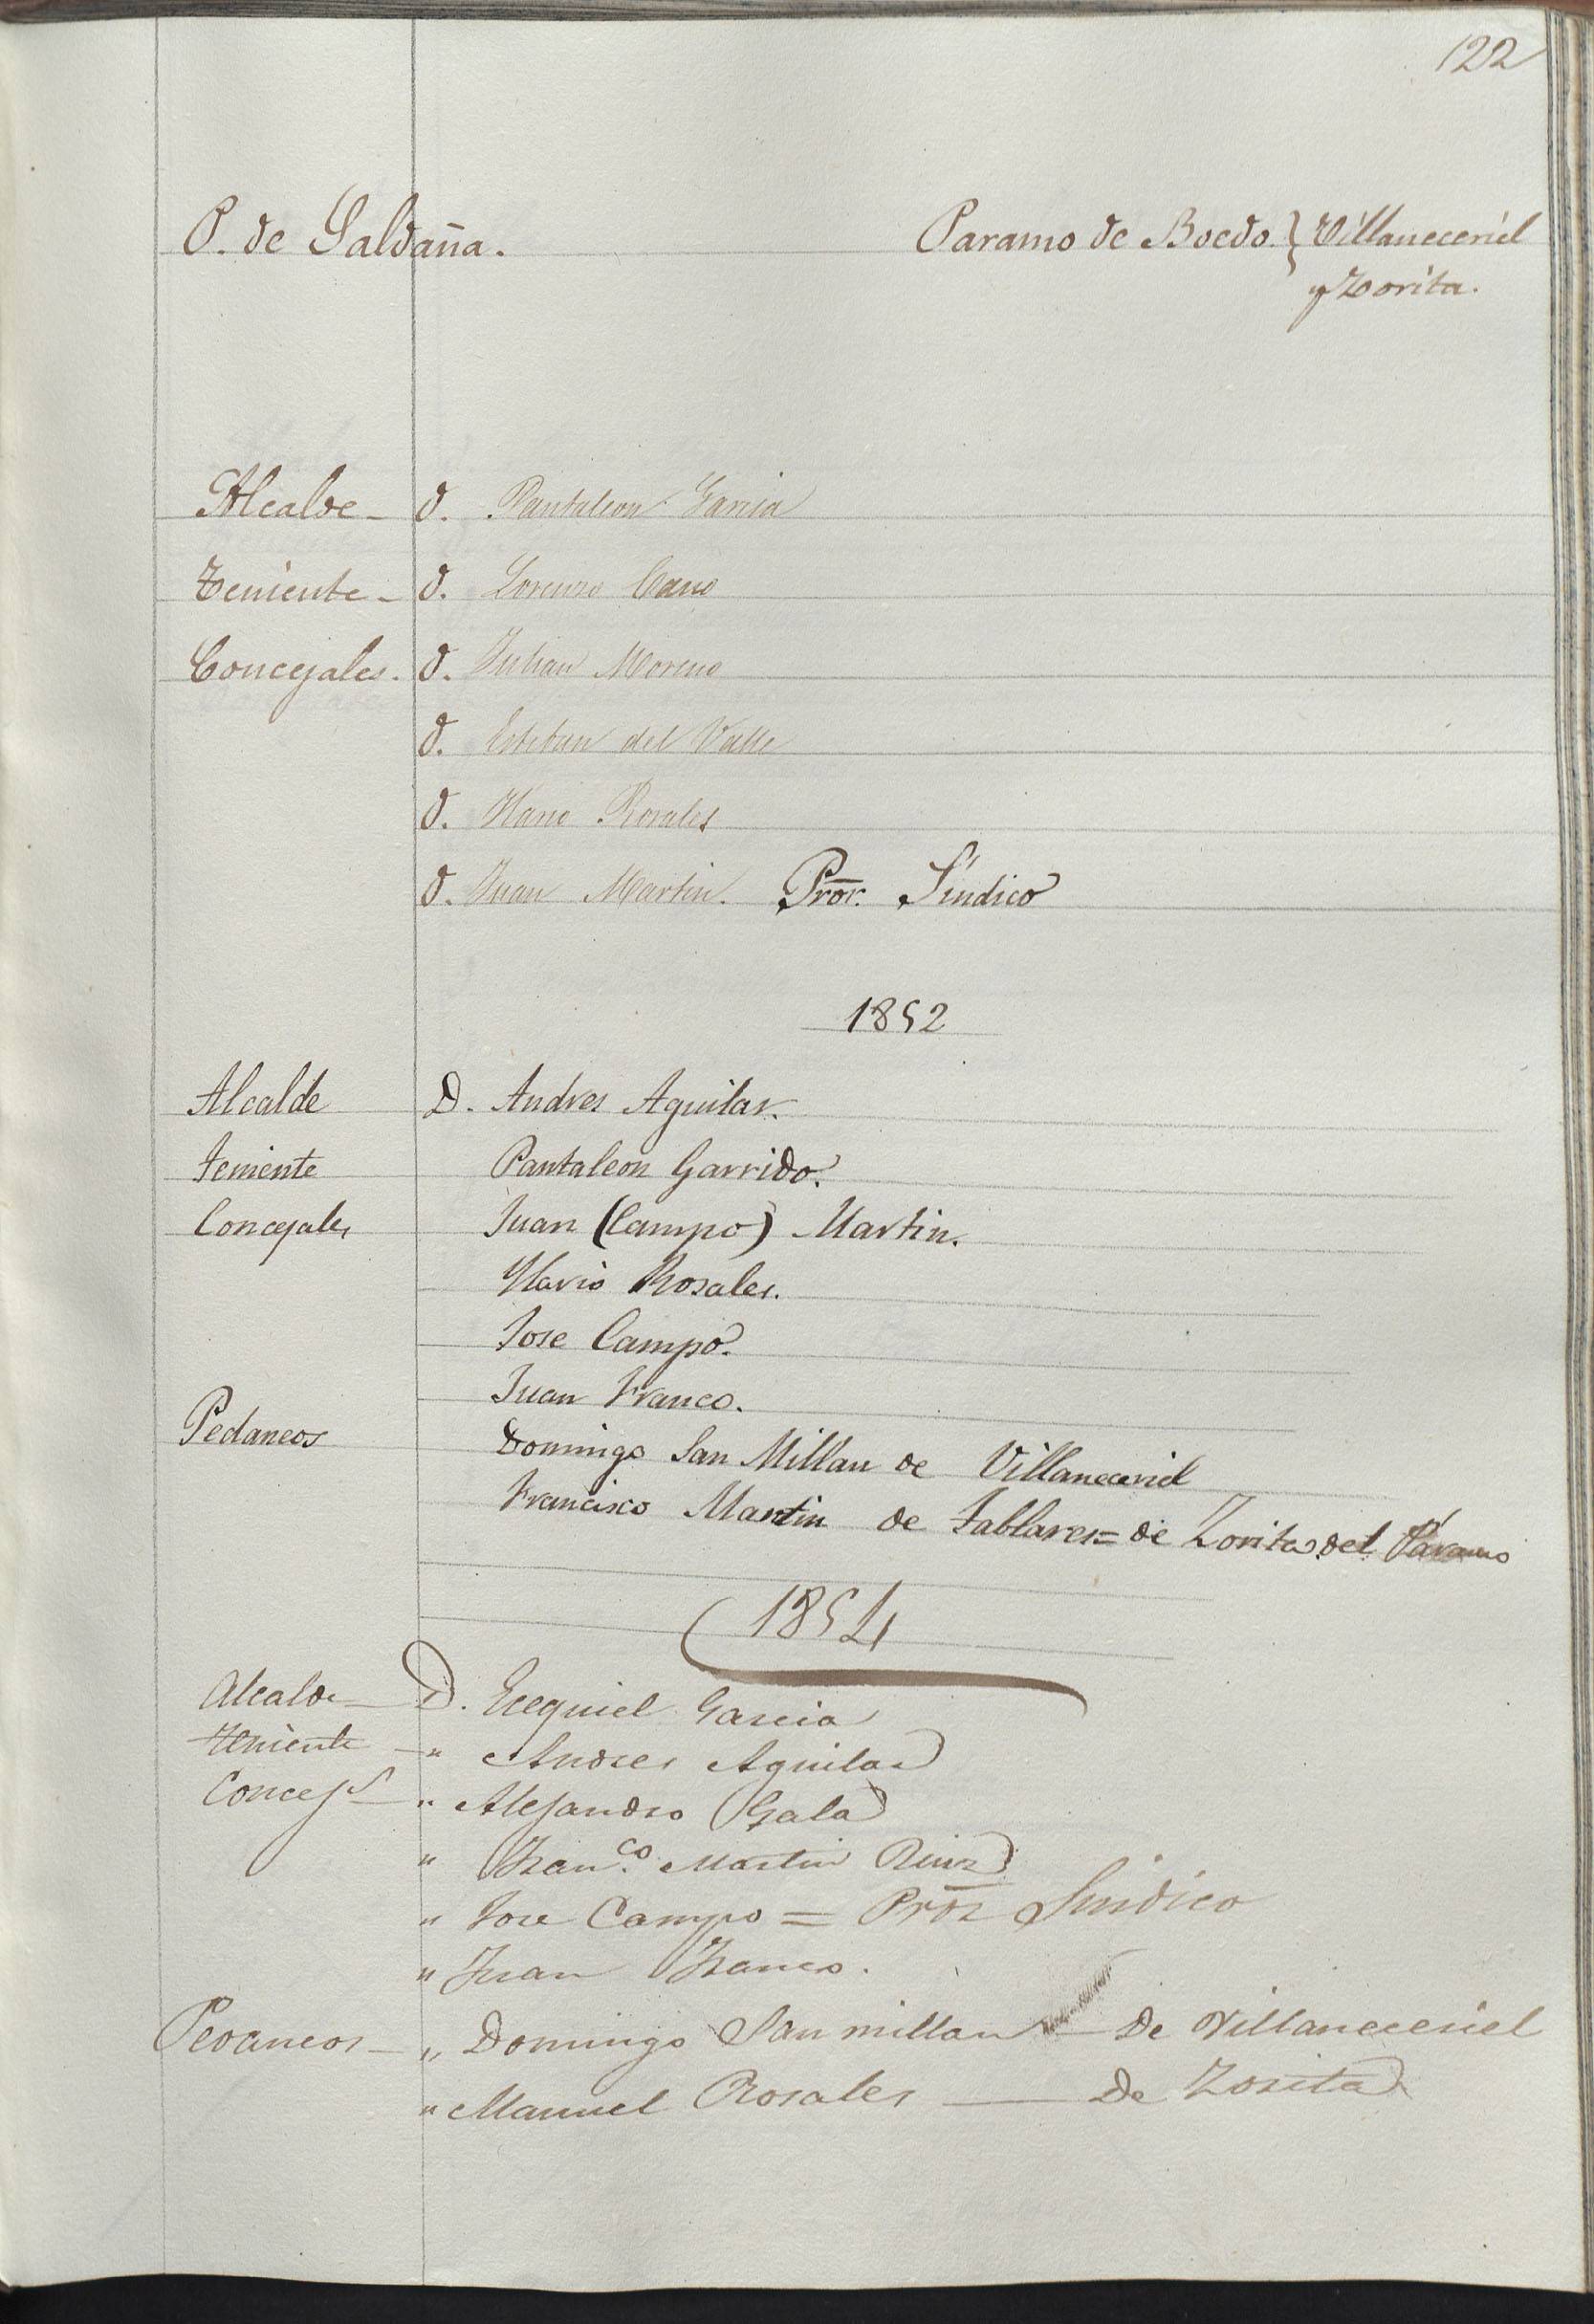 122
P. de Saldaña. Paramo de Boedo. } Villaneceriel
y Zorita.
Alcalde - D. Pantaleon Garcia
Teniente - D. Lorenzo Cano
Concejales. D. Julian Moreno
D. Esteban del Valle
D. Ylario Rosales
D. Juan Martin. Pror. Síndico
1852
Alcalde D. Andres Aguilar.
Teniente Pantaleon Garrido.
Concejales Juan (Campo) Martin.
Ylario Rosales.
Jose Campo.
Juan Franco.
Pedaneos Domingo San Millan de Villaneceriel
Francisco Martin de Tablares = de Zorita del Páramo
1854
Alcalde D. Ecequiel Garcia
Teniente - " Andres Aguilar
Concejs " Alejandro Gala
" Franco. Martin Ruiz
" Jose Campo = Pror Sindico
" Juan Franco.
Pedaneos - " Domingo San millan — De Villaneceriel
" Manuel Rosales — De Zorita